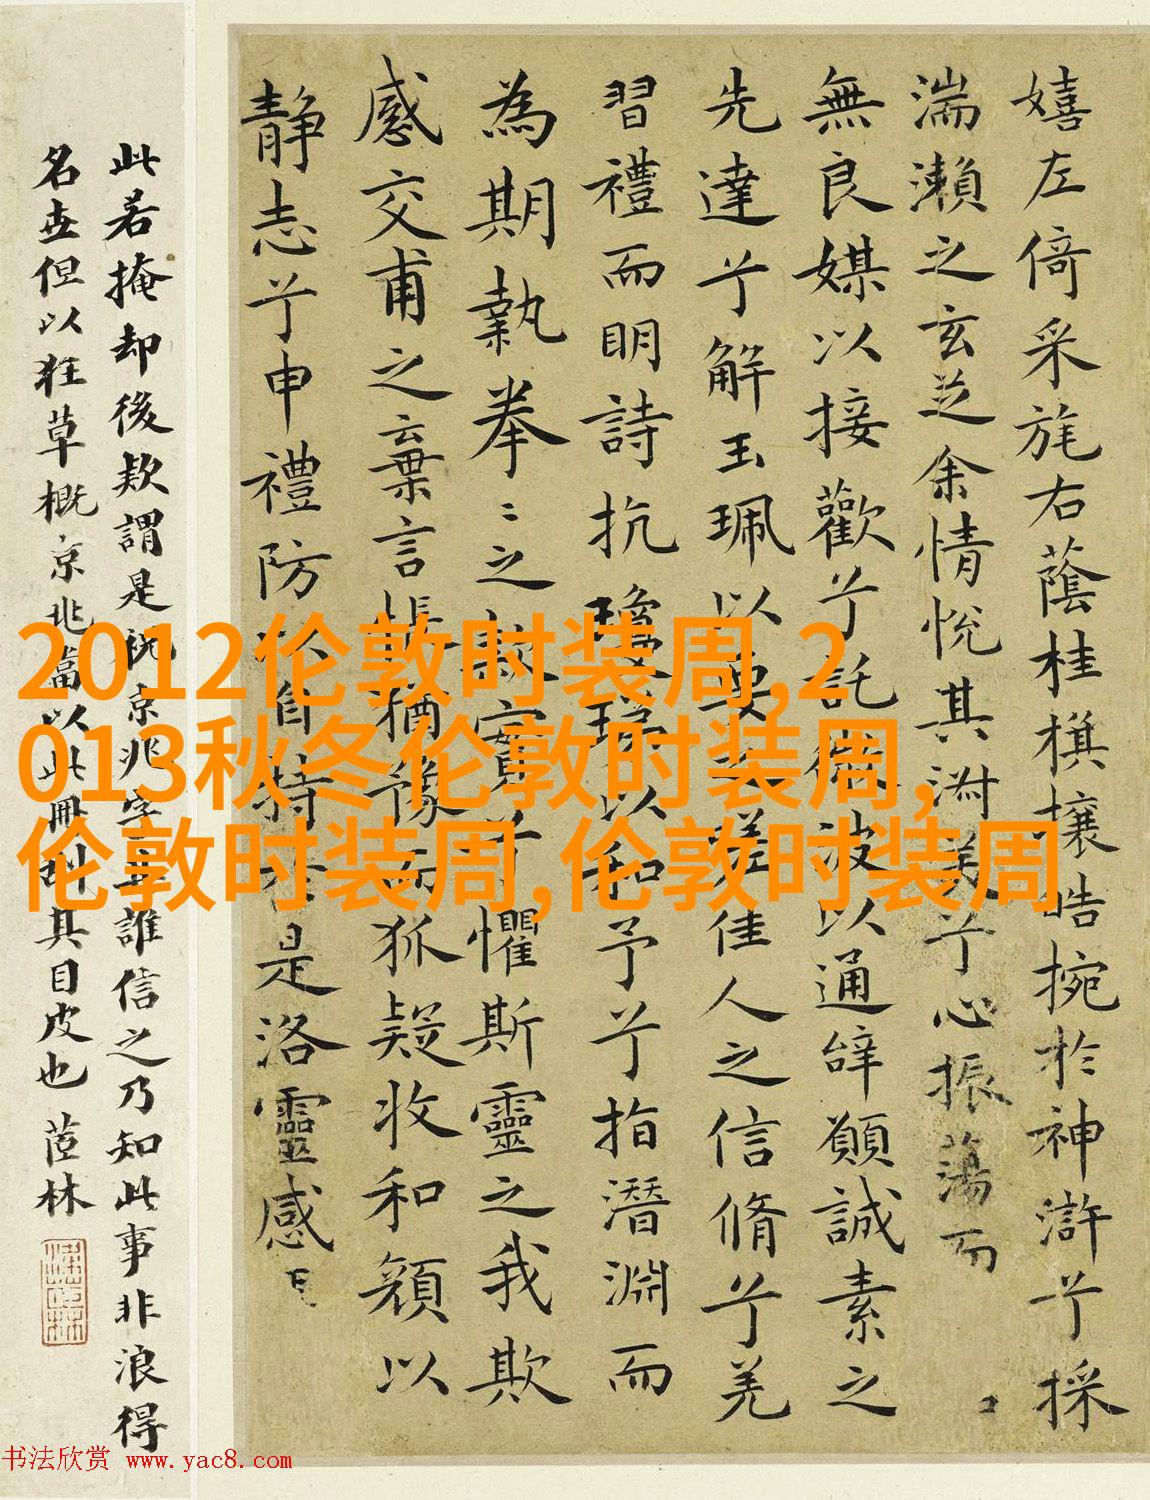 嬉左倚采旄右蔭桂櫎攘皓捥於神滸兮採
湍瀨之玄芝余情悅其淑美兮心振蕩而
無良媒以接歡兮託微波以通辝願誠素之
先達兮解玉珮以要之嗟佳人之信脩兮羌
習禮而明詩抗瓊珶以和予兮兮指潛淵而
為期執拳〻之款實兮懼斯靈之我欺
感交甫之棄言悵猶豫而狐疑收和顏以
靜志兮申禮防以自持於是洛靈感
此若掩却後欵謂是祝京兆字其誰信之乃知此事非浪得
名世但以狂草概京兆當以此冊刮其目皮也 茝林
2012伦敦时装周,2
013秋冬伦敦时装周,
伦敦时装周,伦敦时装周
书法欣赏 www.yac8.com